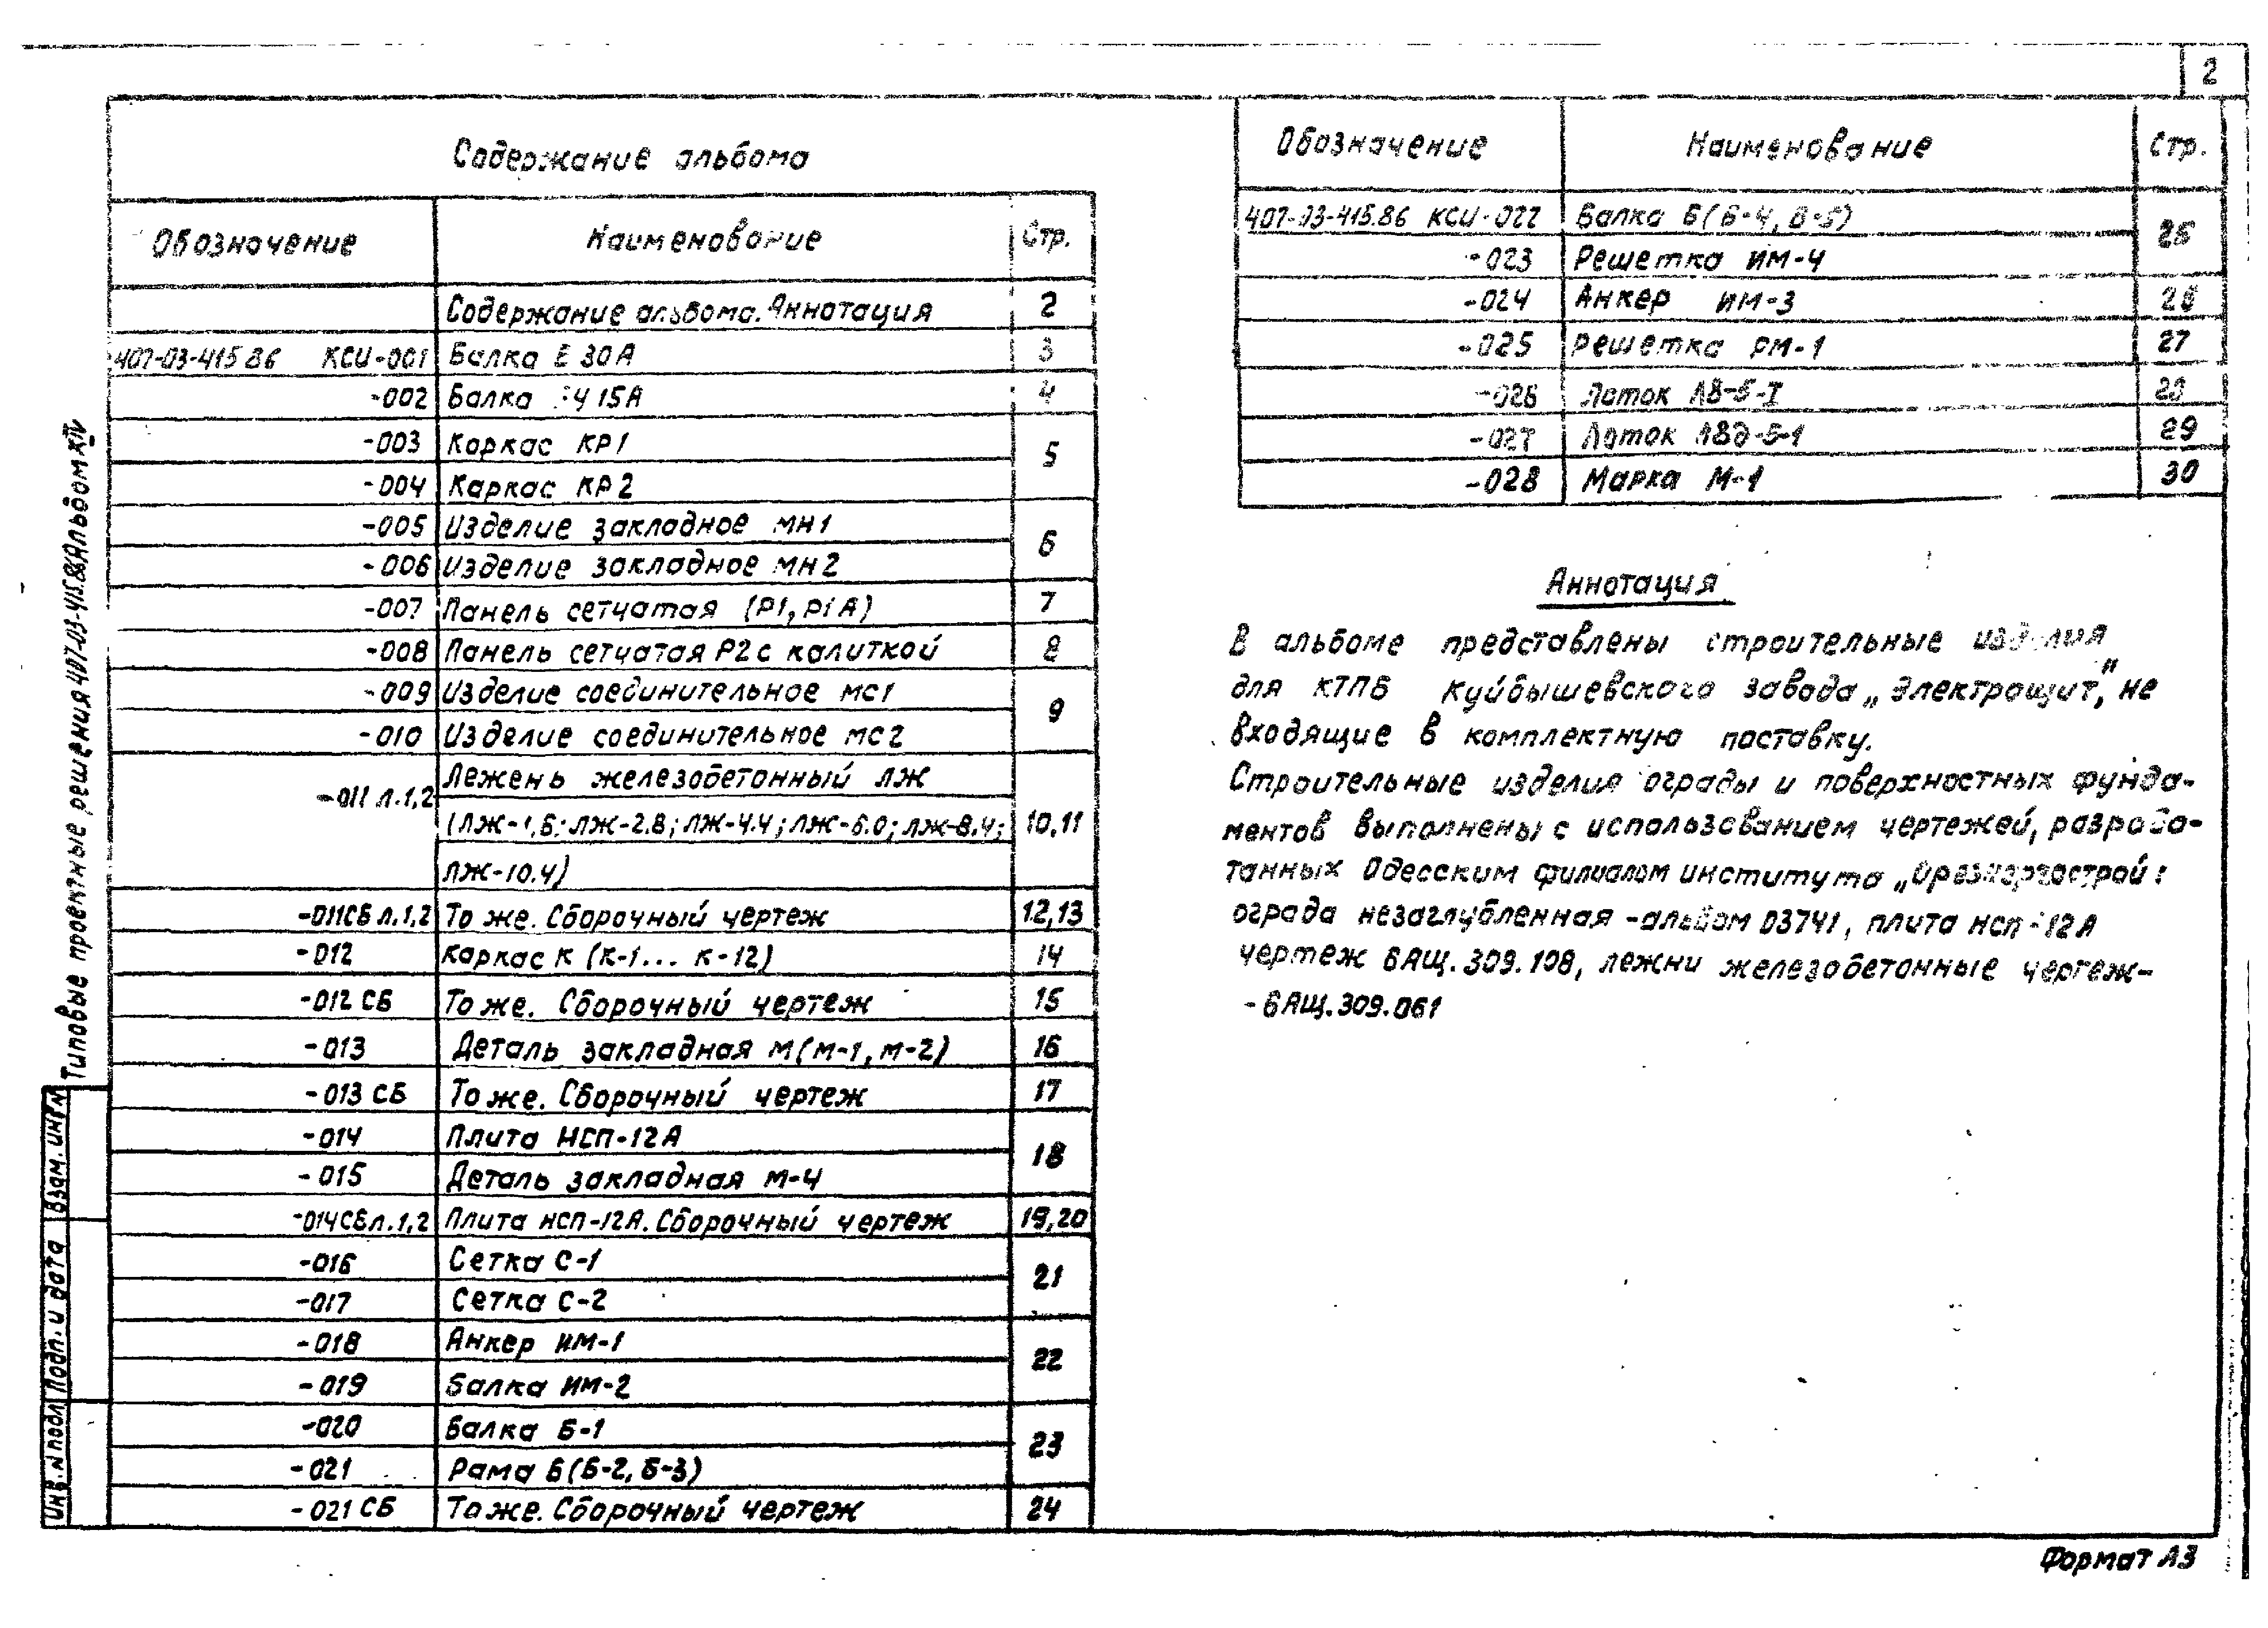 2
Содержание альбома
Обозначение Наименование Стр.
Содержание альбома. Аннотация 2
407-03-415.86 КСИ-001 Балка 30А 3
-002 Балка 15А 4
-003 Каркас КР1 5
-004 Каркас КР2
-005 Изделие закладное МН1 6
-006 Изделие закладное МН2
-007 Панель сетчатая (Р1, Р1А) 7
-008 Панель сетчатая Р2 с калиткой 8
-009 Изделие соединительное МС1 9
-010 Изделие соединительное МС2
-011 л.1,2 Лежень железобетонный ЛЖ
(ЛЖ-1,6; ЛЖ-2.8; ЛЖ-4.4; ЛЖ-6.0; ЛЖ-8.4; 10,11
ЛЖ-10.4)
-011СБ л.1,2 То же. Сборочный чертеж 12,13
-012 Каркас К (К-1... К-12) 14
-012 СБ То же. Сборочный чертеж 15
-013 Деталь закладная М(М-1, М-2) 16
-013 СБ То же. Сборочный чертеж 17
-014 Плита НСП-12А 18
-015 Деталь закладная М-4
-014СБ л.1,2 Плита НСП-12А. Сборочный чертеж 19,20
-016 Сетка С-1 21
-017 Сетка С-2
-018 Анкер ИМ-1 22
-019 Балка ИМ-2
-020 Балка Б-1 23
-021 Рама Б(Б-2, Б-3)
-021 СБ То же. Сборочный чертеж 24
Обозначение Наименование Стр.
407-03-415.86 КСИ-022 Балка Б(Б-4, Б-5)
-023 Решетка ИМ-4
-024 Анкер ИМ-3
-025 Решетка РМ-1 27
-026 Лоток
-027 Лоток 29
-028 Марка М-1 30
Аннотация
В альбоме представлены строительные изделия
для КТПБ Куйбышевского завода „Электрощит", не
входящие в комплектную поставку.
Строительные изделия ограды и поверхностных фунда-
ментов выполнены с использованием чертежей, разрабо-
танных Одесским филиалом института „Оргэнергострой:
ограда незаглубленная -альбом 03741, плита НСП-12А
чертеж БАЩ.309.108, лежни железобетонные чертеж-
-БАЩ.309.061
Типовые проектные решения 407-03-415.86 Альбом XIV
Взам. инв. N
Подп. и дата
Инв. N подл
Формат А3